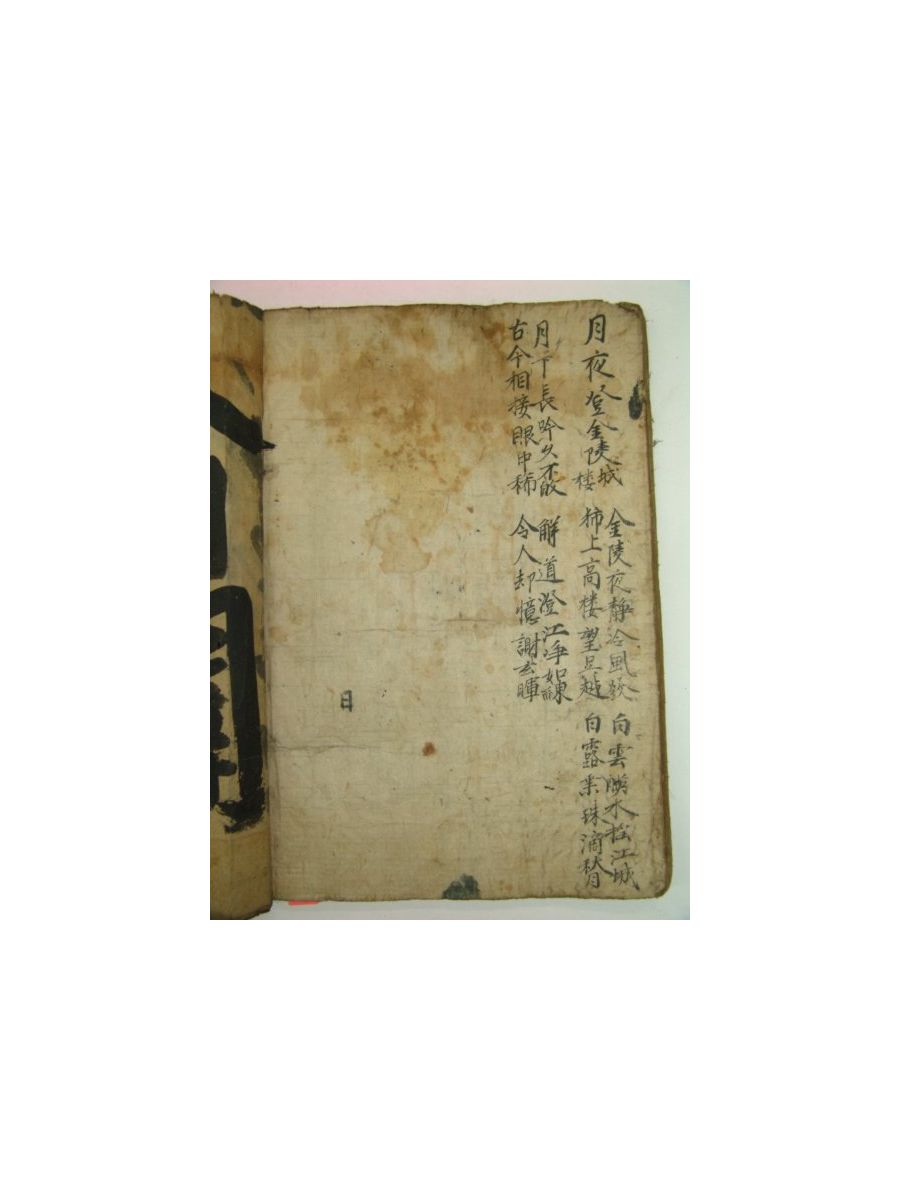 月夜登金陵城
楼
金陵夜靜冷風發
上高楼望吴越
向雲暎水松江城
白露垂珠滴秋月
月下長吟久不敀
古今相接眼中稀
解道澄江净如練
令人却憶謝玄暉
日